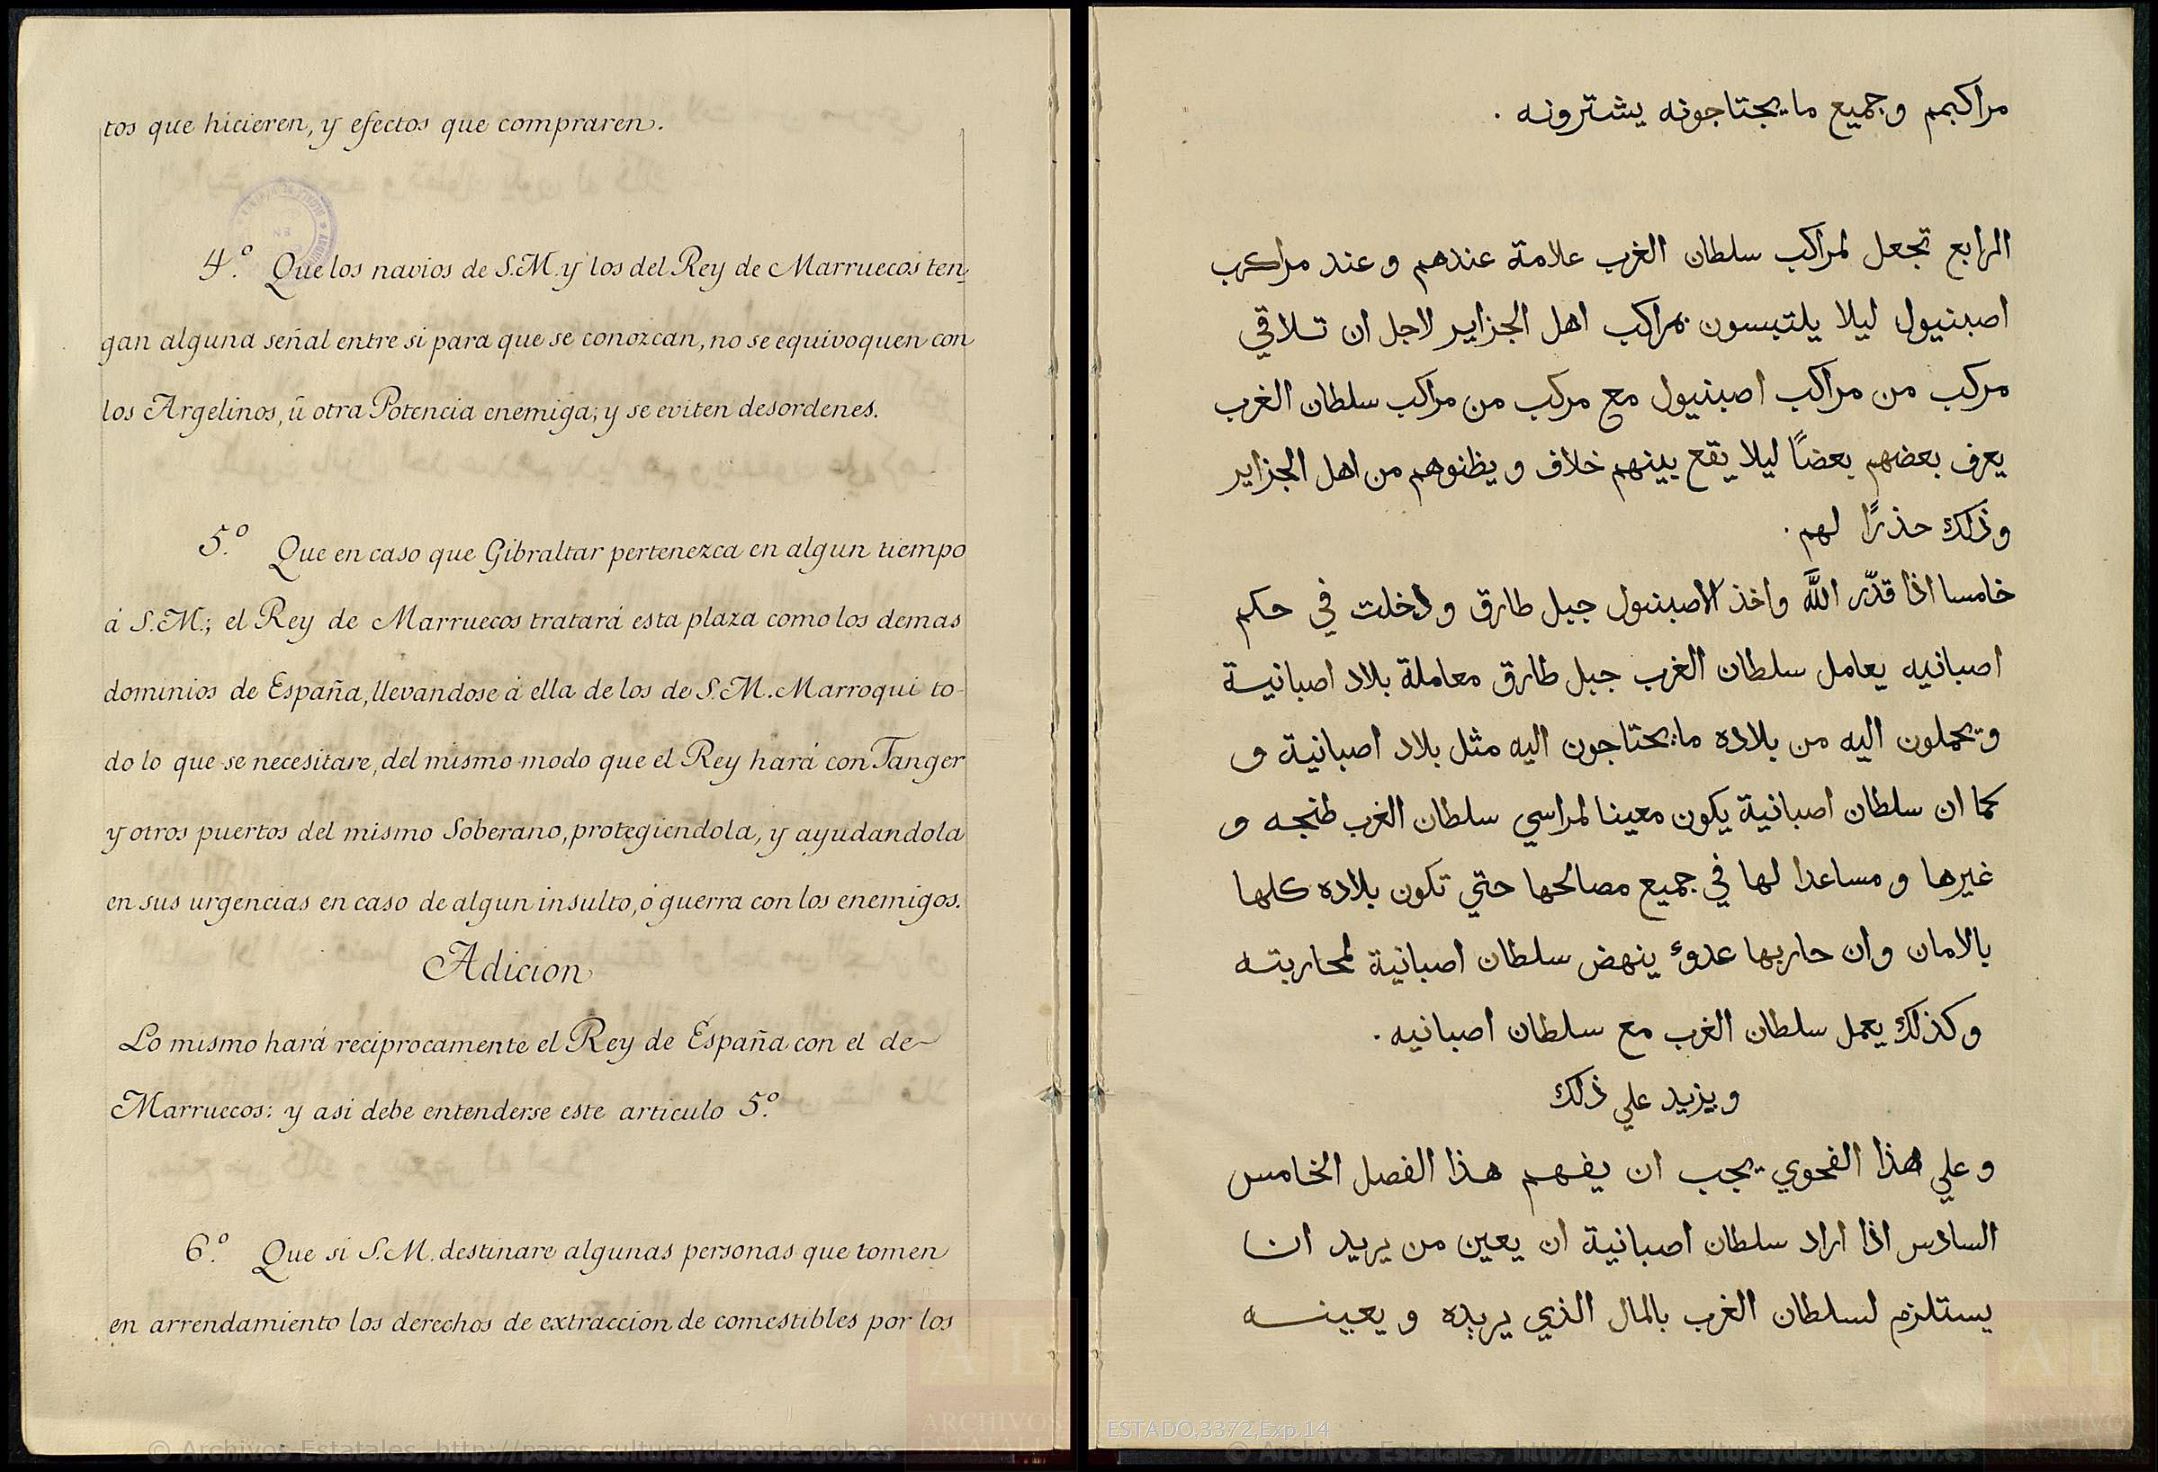 tos que hicieren, y efectos que compraren.
4.º Que los navios de S.M. y los del Rey de Marruecos ten-
gan alguna señal entre si para que se conozcan, no se equivoquen con
los Argelinos, ú otra Potencia enemiga; y se eviten desordenes.
5.º Que en caso que Gibraltar pertenezca en algun tiempo
á S.M.; el Rey de Marruecos tratará esta plaza como los demas
dominios de España, llevandose á ella de los de S.M. Marroqui to-
do lo que se necesitare, del mismo modo que el Rey hará con Tanger
y otros puertos del mismo Soberano, protegiendola, y ayudandola
en sus urgencias en caso de algun insulto, ó guerra con los enemigos.
Adicion
Lo mismo hará reciprocamente el Rey de España con el de
Marruecos: y asi debe entenderse este articulo 5.º
6.º Que si S.M. destinare algunas personas que tomen
en arrendamiento los derechos de extraccion de comestibles por los
مراكبهم وجميع ما يحتاجونه يشترونه .
الرابع تجعل لمراكب سلطان الغرب علامة عندهم و عند مراكب
اصبنيول ليلا يلتبسون بمراكب اهل الجزاير لاجل ان تلاقي
مركب من مراكب اصبنيول مع مركب من مراكب سلطان الغرب
يعرف بعضهم بعضًا ليلا يقع بينهم خلاف و يظنوهم من اهل الجزاير
وذلك حذرًا لهم .
خامسا اذا قدّر الله واخذ الاصبنيول جبل طارق ودخلت في حكم
اصبانيه يعامل سلطان الغرب جبل طارق معاملة بلاد اصبانية
ويحملون اليه من بلاده ما يحتاجون اليه مثل بلاد اصبانية و
كما ان سلطان اصبانية يكون معينا لمراسي سلطان الغرب طنجه و
غيرها و مساعدا لها في جميع مصالحها حتي تكون بلاده كلها
بالامان وان حاربها عدوّ ينهض سلطان اصبانية لمحاربته
وكذلك يعمل سلطان الغرب مع سلطان اصبانيه .
ويزيد علي ذلك
و علي هذا الفحوي يجب ان يفهم هذا الفصل الخامس
السادس اذا اراد سلطان اصبانية ان يعين من يريد ان
يستلزم لسلطان الغرب بالمال الذي يريده و يعينه
ARCHIVOS
ESTADO,3372,Exp.14
© Archivos Estatales, http://pares.culturaydeporte.gob.es
© Archivos Estatales, http://pares.culturaydeporte.gob.es